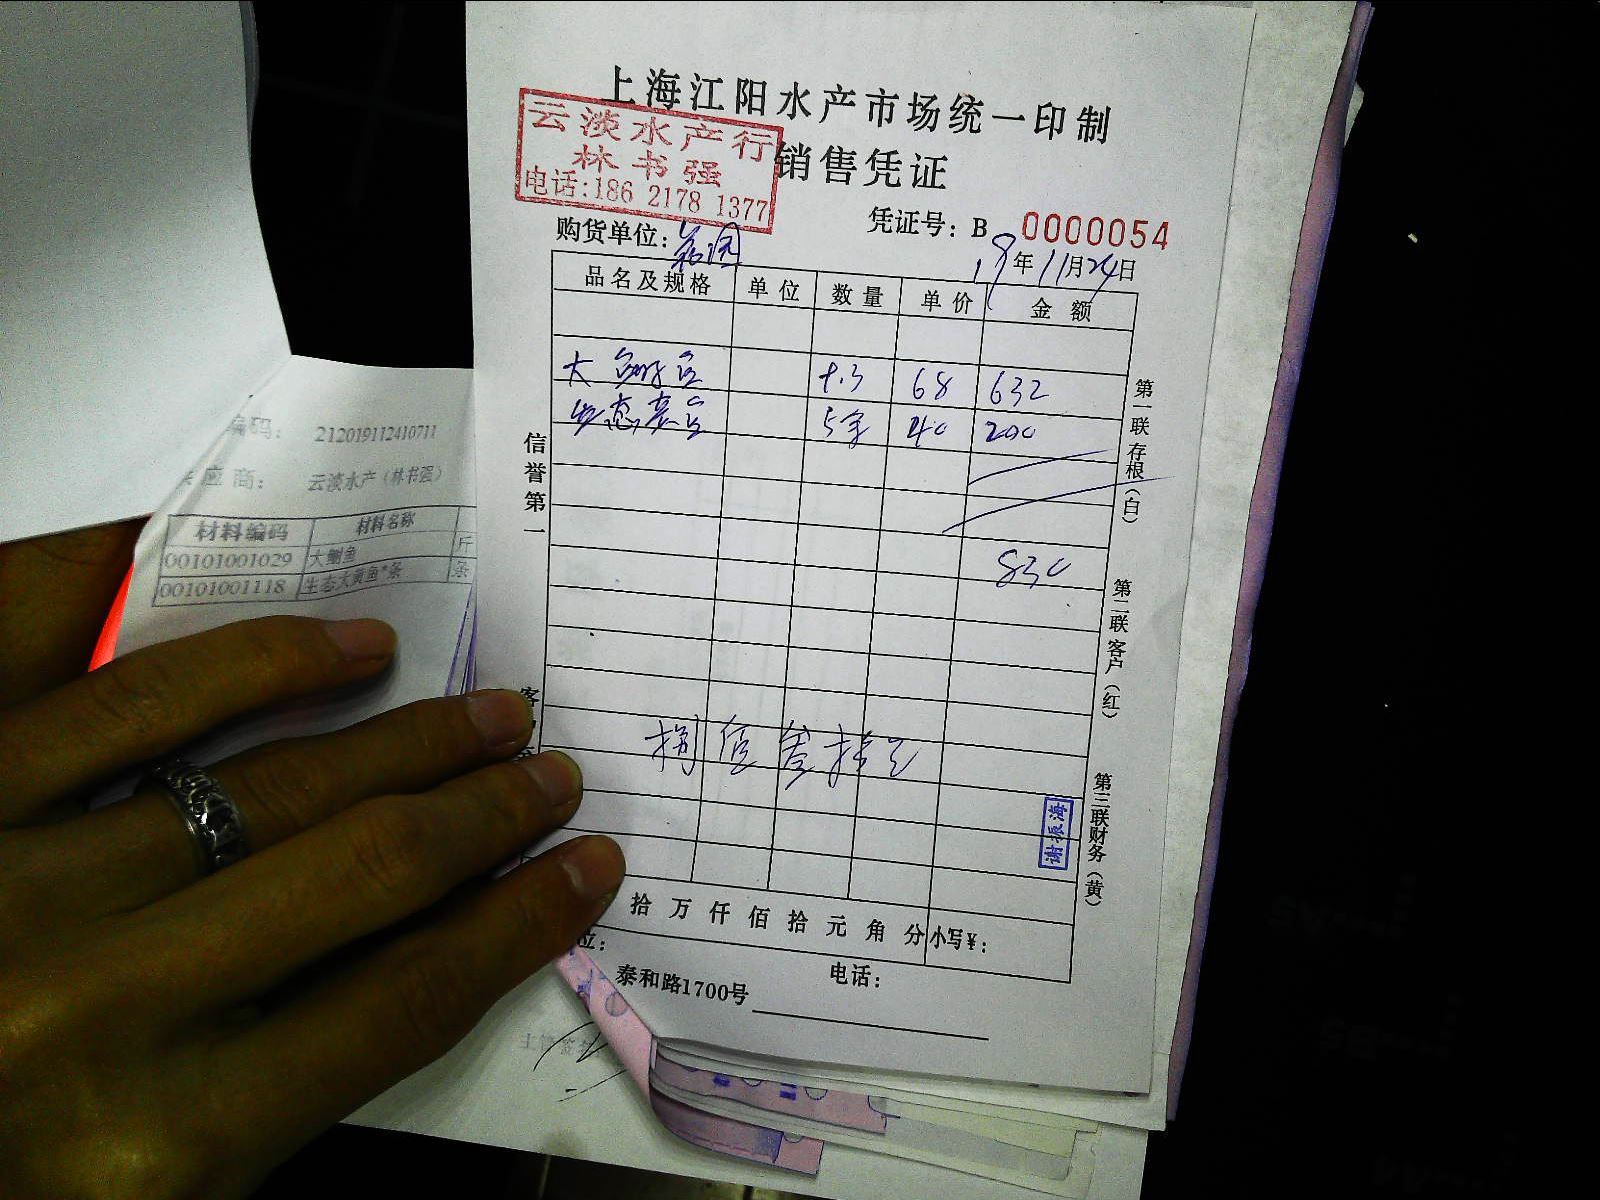 上海江阳水产市场统一印制
销售凭证
云淡水产行
林书强
电话:186 2178 1377
凭证号: B 0000054
购货单位:
19年11月24日
品名及规格 单位 数量 单价 金额
大鲥鱼 9.3 68 632
生态黄鱼 5条 40 200
830
捌佰叁拾元
信誉第一
第一联存根(白)
第二联客户(红)
第三联财务(黄)
谢振海
拾万仟佰拾元角分 小写¥:
位:
电话:
泰和路1700号
编码: 212019112410711
应商: 云淡水产(林书强)
材料编码 材料名称
00101001029 大鲥鱼 斤
00101001118 生态大黄鱼*条 条